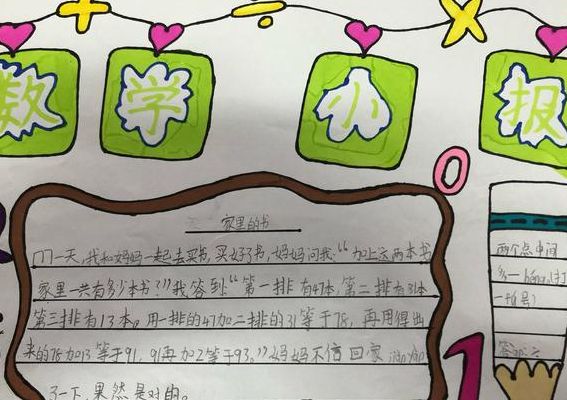 数学小报
家里的书
有一天,我和妈妈一起去买书,买好了书,妈妈问我:“加上这两本书
家里一共有多少本书?”我答到“第一排有47本,第二排有31本
第三排有13本,用一排的47加二排的31等于78,再用得出
来的78加13等于91,91再加2等于93。”妈妈不信回家
了一下,果然是对的。
0
1
两个点中间
一
(打
一